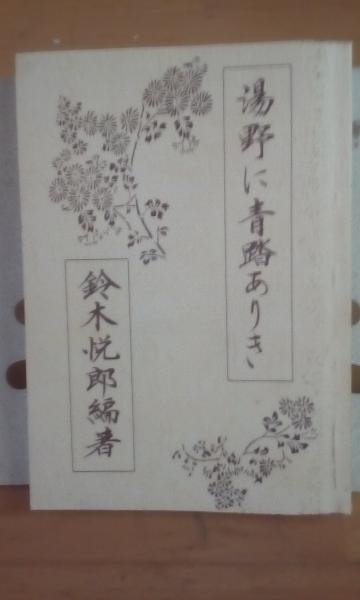 湯野に青踏ありき
鈴木悦郎編著